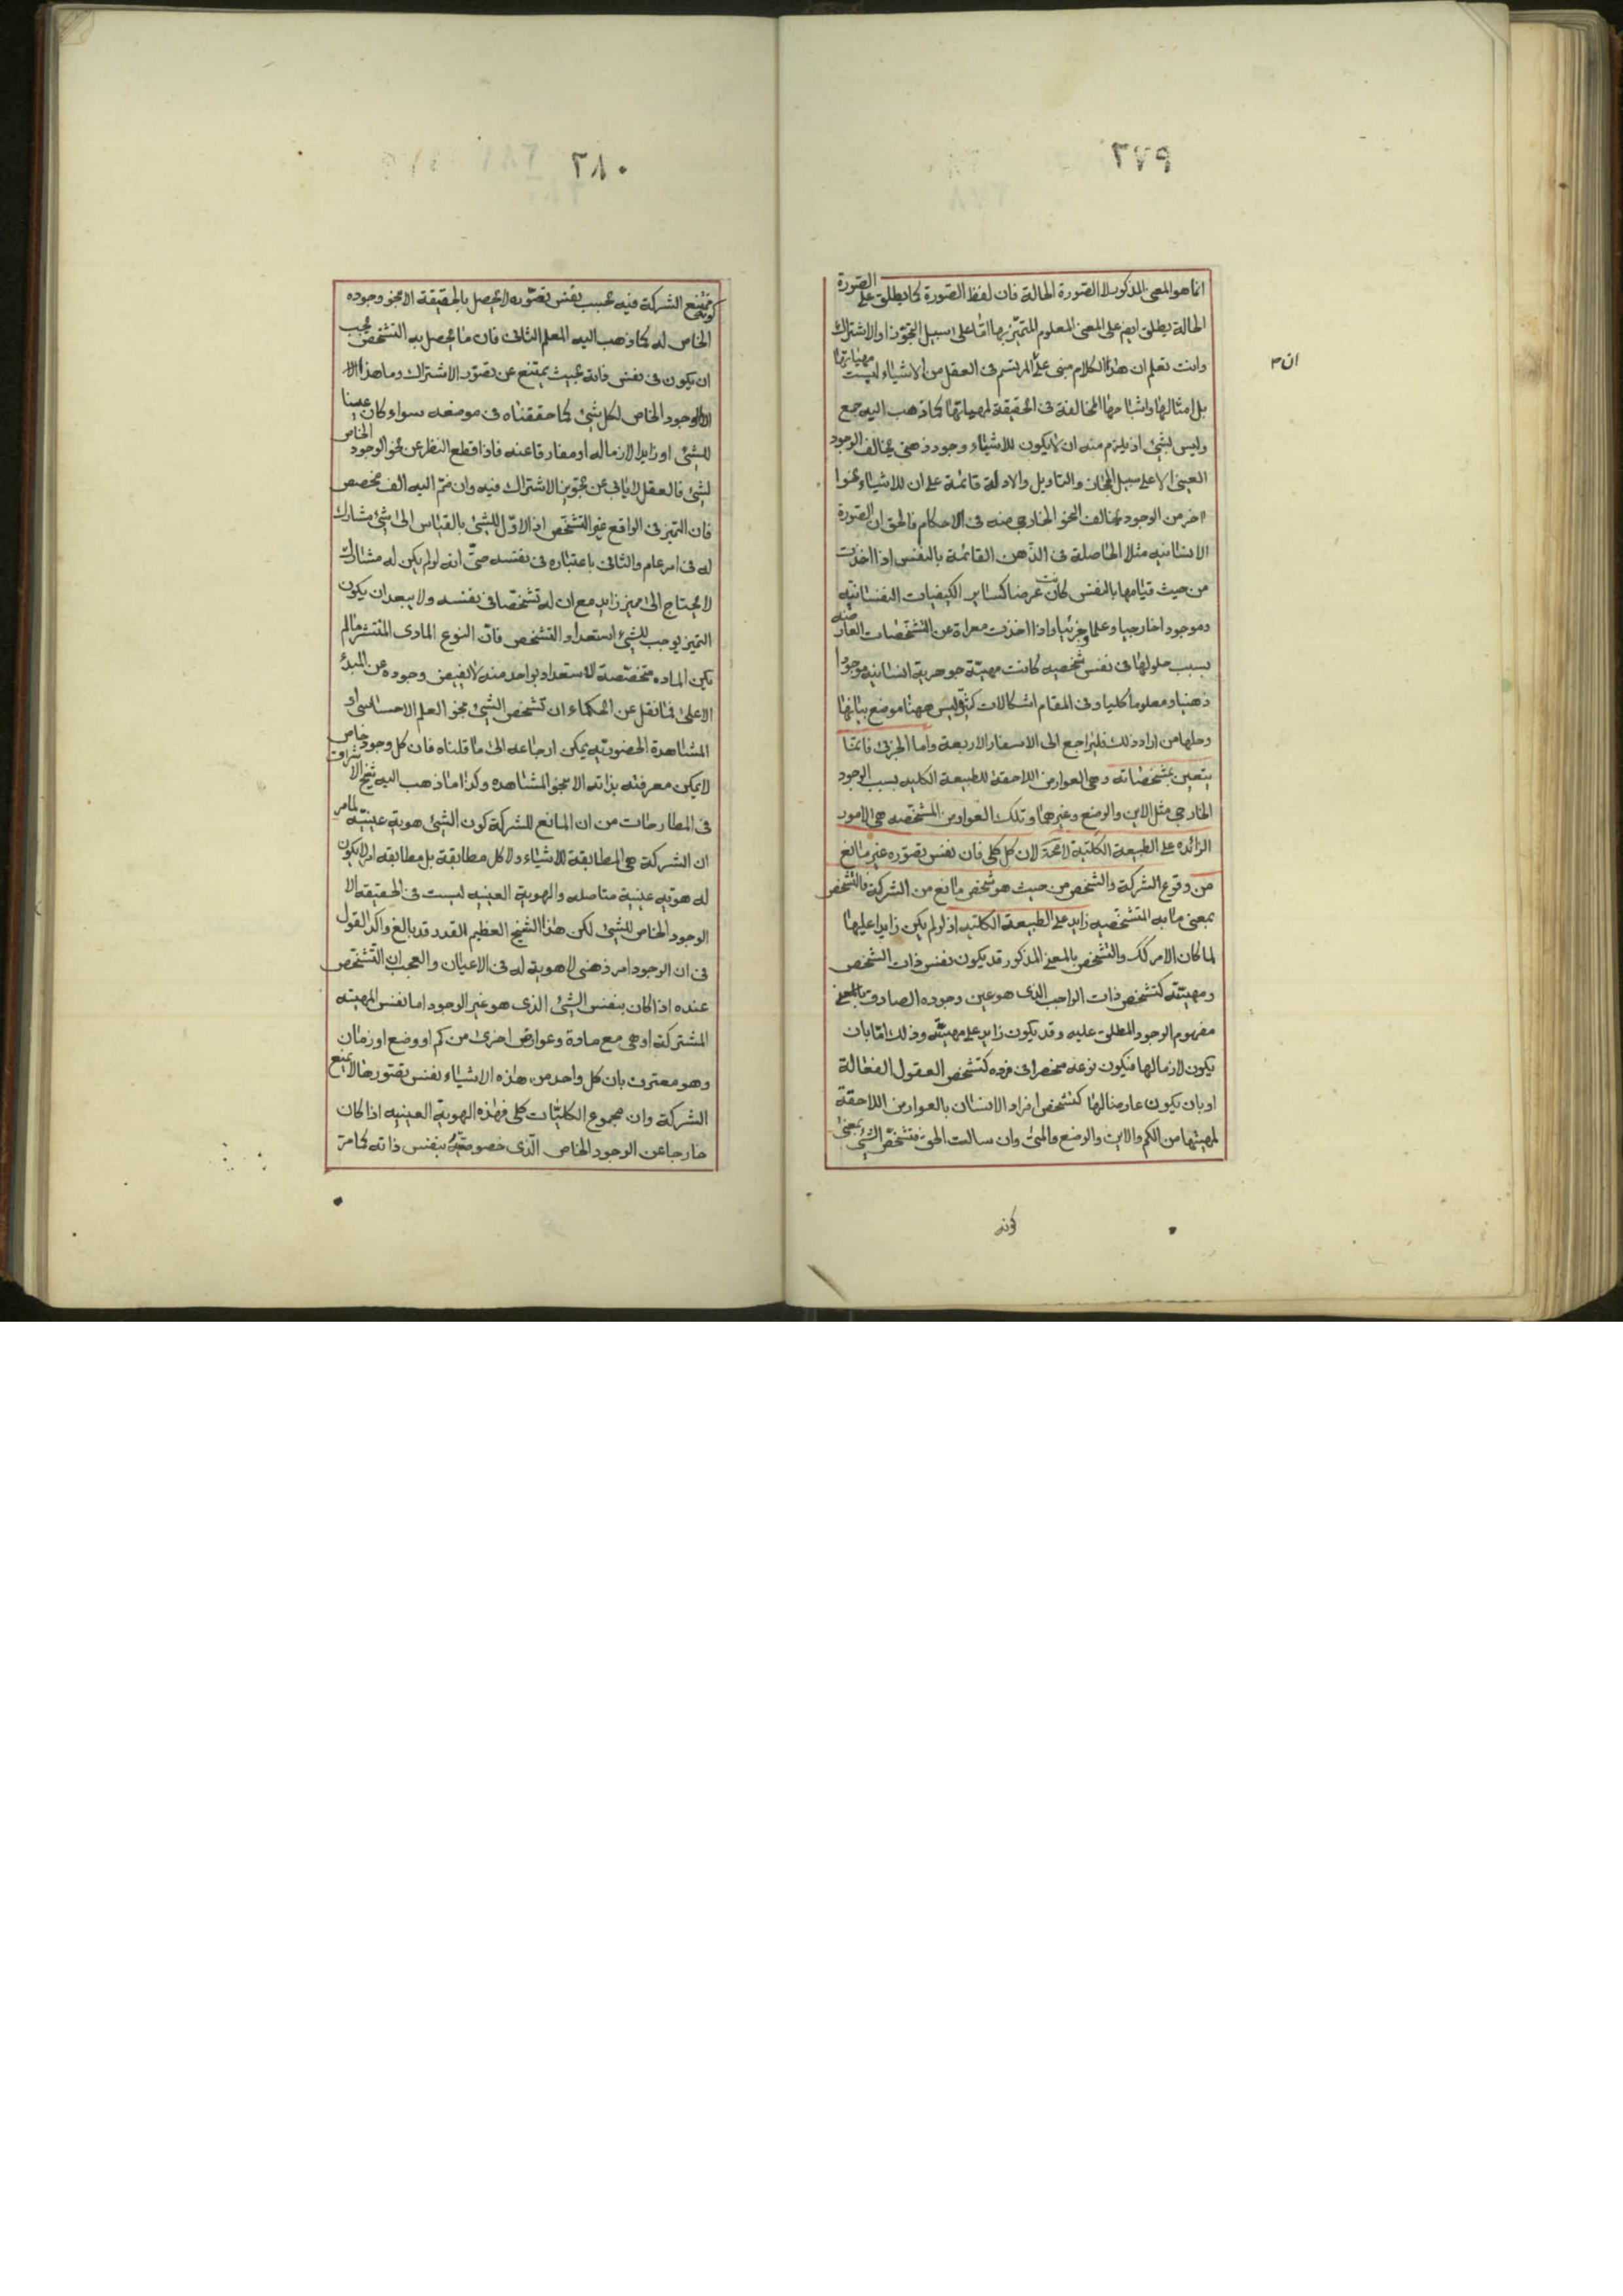 ٢٧٩
انما هو المعنى المذكور لا الصورة الحالة فان لفظ الصورة كما يطلق على الصورة
الحالة يطلق ايضم على المعنى المعلوم المتميّز بها امّا على سبيل التجوّز او الاشتراك
وانت تعلم ان هذا الكلام مبنى على المرتسم فى العقل من الاشياء ليست مهياتها
ان م
بل امثالها واشباهها المخالفة فى الحقيقة لمهياتها كما ذهب اليه جمع
وليس بشئ اذ يلزم منه ان لا يكون للاشياء وجود ذهنى يخالف الوجود
العينى الا على سبيل المجاز والتاويل والادلة قائمة على ان للاشياء نحوا
اخر من الوجود يخالف النحو الخارجى منه فى الاحكام فالحق ان الصورة
الانسانيه مثلا الحاصلة فى الذهن القائمة بالنفس اذا اخذت
من حيث قيامها بالنفس كانت عرضا كساير الكيفيات النفسانيه
وموجودا خارجيا وعلما جزئيا واذا اخذت معراة عن التشخّصات العارضه
بسبب حلولها فى نفس شخصيه كانت مهيّة جوهرية انسانيه موجودا
ذهنيا ومعلوما كليا وفى المقام اشكالات كثيرة ليس ههنا موضع بيانها
وحلها من اراد ذلك فليراجع الى الاسفار الاربعة واما الجزئى فانما
يتعين بمشخصاته وهى العوارض اللاحقة للطبيعة الكليه بسبب الوجود
الخارجى مثل الاين والوضع وغيرهما وتلك العوارض المشخصه هى الامور
الزائده على الطبيعة الكلية لا محة لان كل كلى فان نفس تصوّره غير مانع
من وقوع الشركة والشخص من حيث هو شخص مانع من الشركة فالتشخص
بمعنى ما به التشخّصيه زايد على الطبيعة الكليه اذ لو لم يكن زايدا عليها
لما كان الامر كك والتشخص بالمعنى المذكور قد يكون نفس ذات الشخص
ومهيّته كتشخص ذات الواجب الذى هو عين وجوده الصادق بالمعنى
مفهوم الوجود المطلق عليه وقد يكون زايد على مهيّته وذلك امّا بان
يكون لازما لها فيكون نوعه منحصرا فى فرده كتشخص العقول الفعالة
او بان يكون عارضا لها كتشخص افراد الانسان بالعوارض اللاحقة
لمهيتها من الكم والاين والوضع والمتى وان سالت الحق فتشخّص الشئ بمعنى
كونه
٢٨٠
كونه ممتنع الشركة فيه بحسب نفس تصوّره لا يحصل بالحقيقة الا بنحو وجوده
الخاص له كما ذهب اليه المعلم الثانى فان ما يحصل به التشخص يجب
ان يكون فى نفس ذاته بحيث يمتنع عن تصوّر الاشتراك وما هذا الا
الوجود الخاص لكل شئ كما حققناه فى موضعه سواء كان عينا
للشئ او زايدا لازما له او مفارقا عنه فاذا قطع النظر عن نحو الوجود الخاص
لشئ فالعقل لا يابى عن تجويز الاشتراك فيه وان ضمّ اليه الف مخصص
فان التميز فى الواقع غير التشخّص اذ الاوّل للشئ بالقياس الى شئ مشارك
له فى امر عام والثانى باعتباره فى نفسه حتّى انه لو لم يكن له مشارك
لا يحتاج الى مميز زايد مع ان له تشخصّا فى نفسه ولا يبعد ان يكون
التميز يوجب للشئ استعداد التشخص فانّ النوع المادى المنتشر ما لم
يكن الماده متخصّصة للاستعداد بواحد منه لا يفيض وجوده عن المبدء
الاعلى فما نقل عن الحكماء ان تشخص الشئ بنحو العلم الاحساسى او
المشاهدة الحضوريّه يمكن ارجاعه الى ما قلناه فان كل وجود خاص
لا يمكن معرفته بذاته الا بنحو المشاهده وكذا ما ذهب اليه شيخ الاشراق
فى المطارحات من ان المانع للشركة كون الشئ هوية عينيّه لما مر
ان الشركة هى المطابقة للاشياء ولا كل مطابقة بل مطابقه امر لا يكون
له هويّه عينية متاصله والهوية العينيه ليست فى الحقيقه الا
الوجود الخاص للشئ لكن هذا الشيخ العظيم القدر قد بالغ واكد القول
فى ان الوجود امر ذهنى لا هوية له فى الاعيان والعجب ان التّشخّص
عنده اذا كان بنفس الشئ الذى هو غير الوجود اما نفس المهيته
المشتركة او هى مع مادة وعوارض اخرى من كم او وضع او زمان
وهو معترف بان كل واحد من هذه الاشياء نفس تصورها لا يمنع
الشركة وان مجموع الكليّات كلى فهذه الهوية العينيه اذا كان
خارجا عن الوجود الخاص الّذى خصوصيّته بنفس ذاته كما مرّ